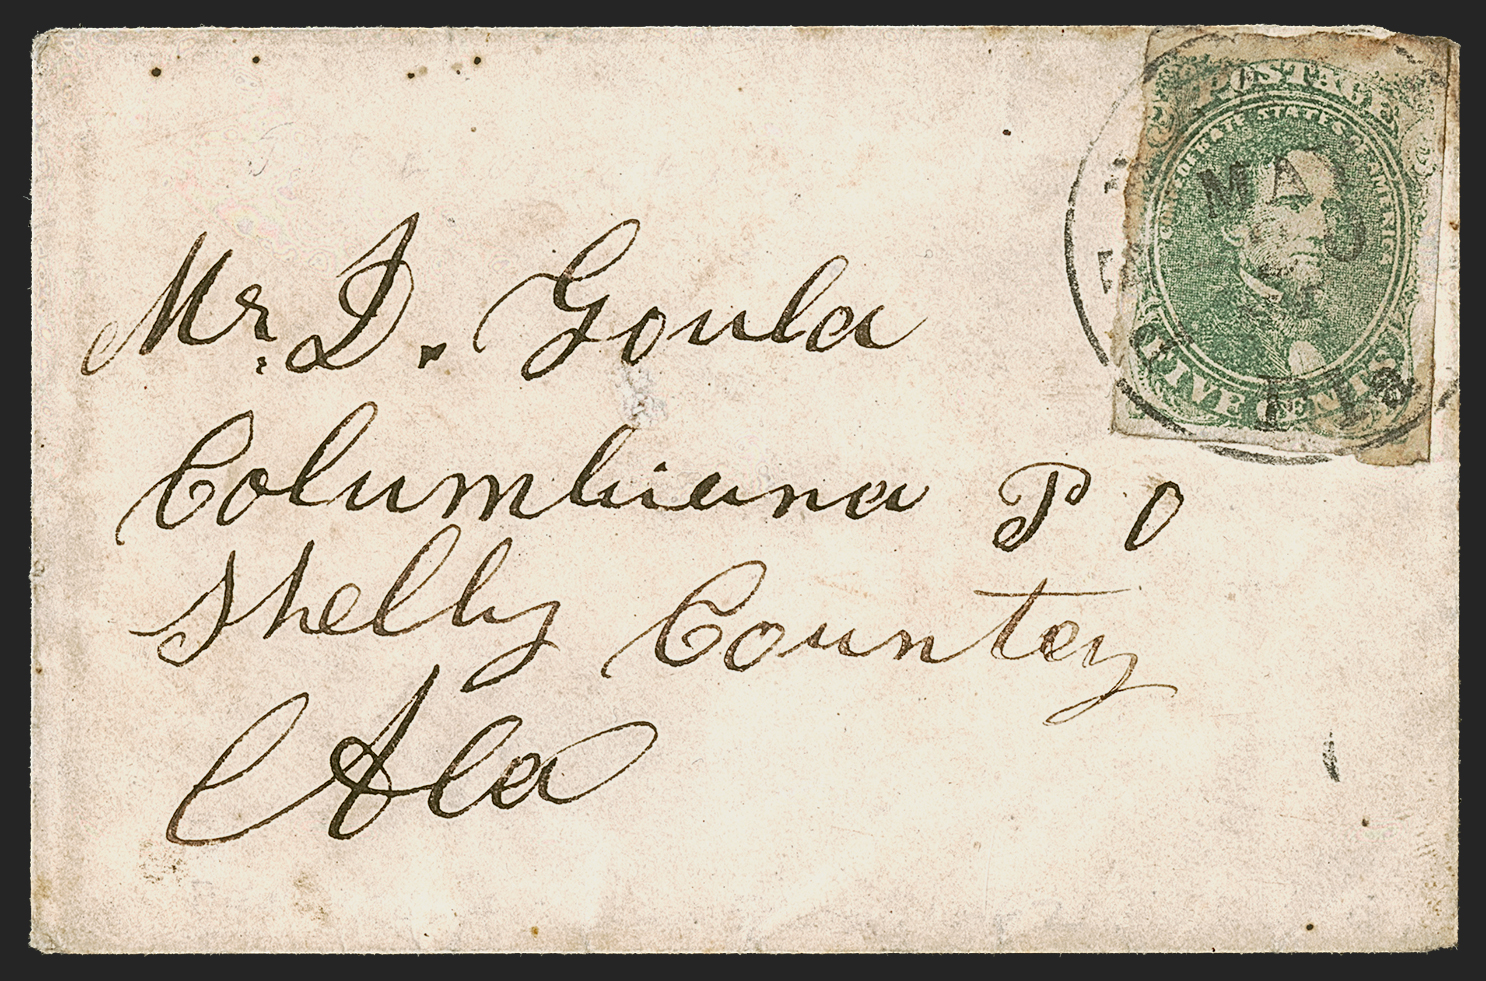 POSTAGE
CONFEDERATE STATES OF AMERICA
FIVE CENTS
Mr. D. Goula
Columbiana P O
Shelby Countey
Ala